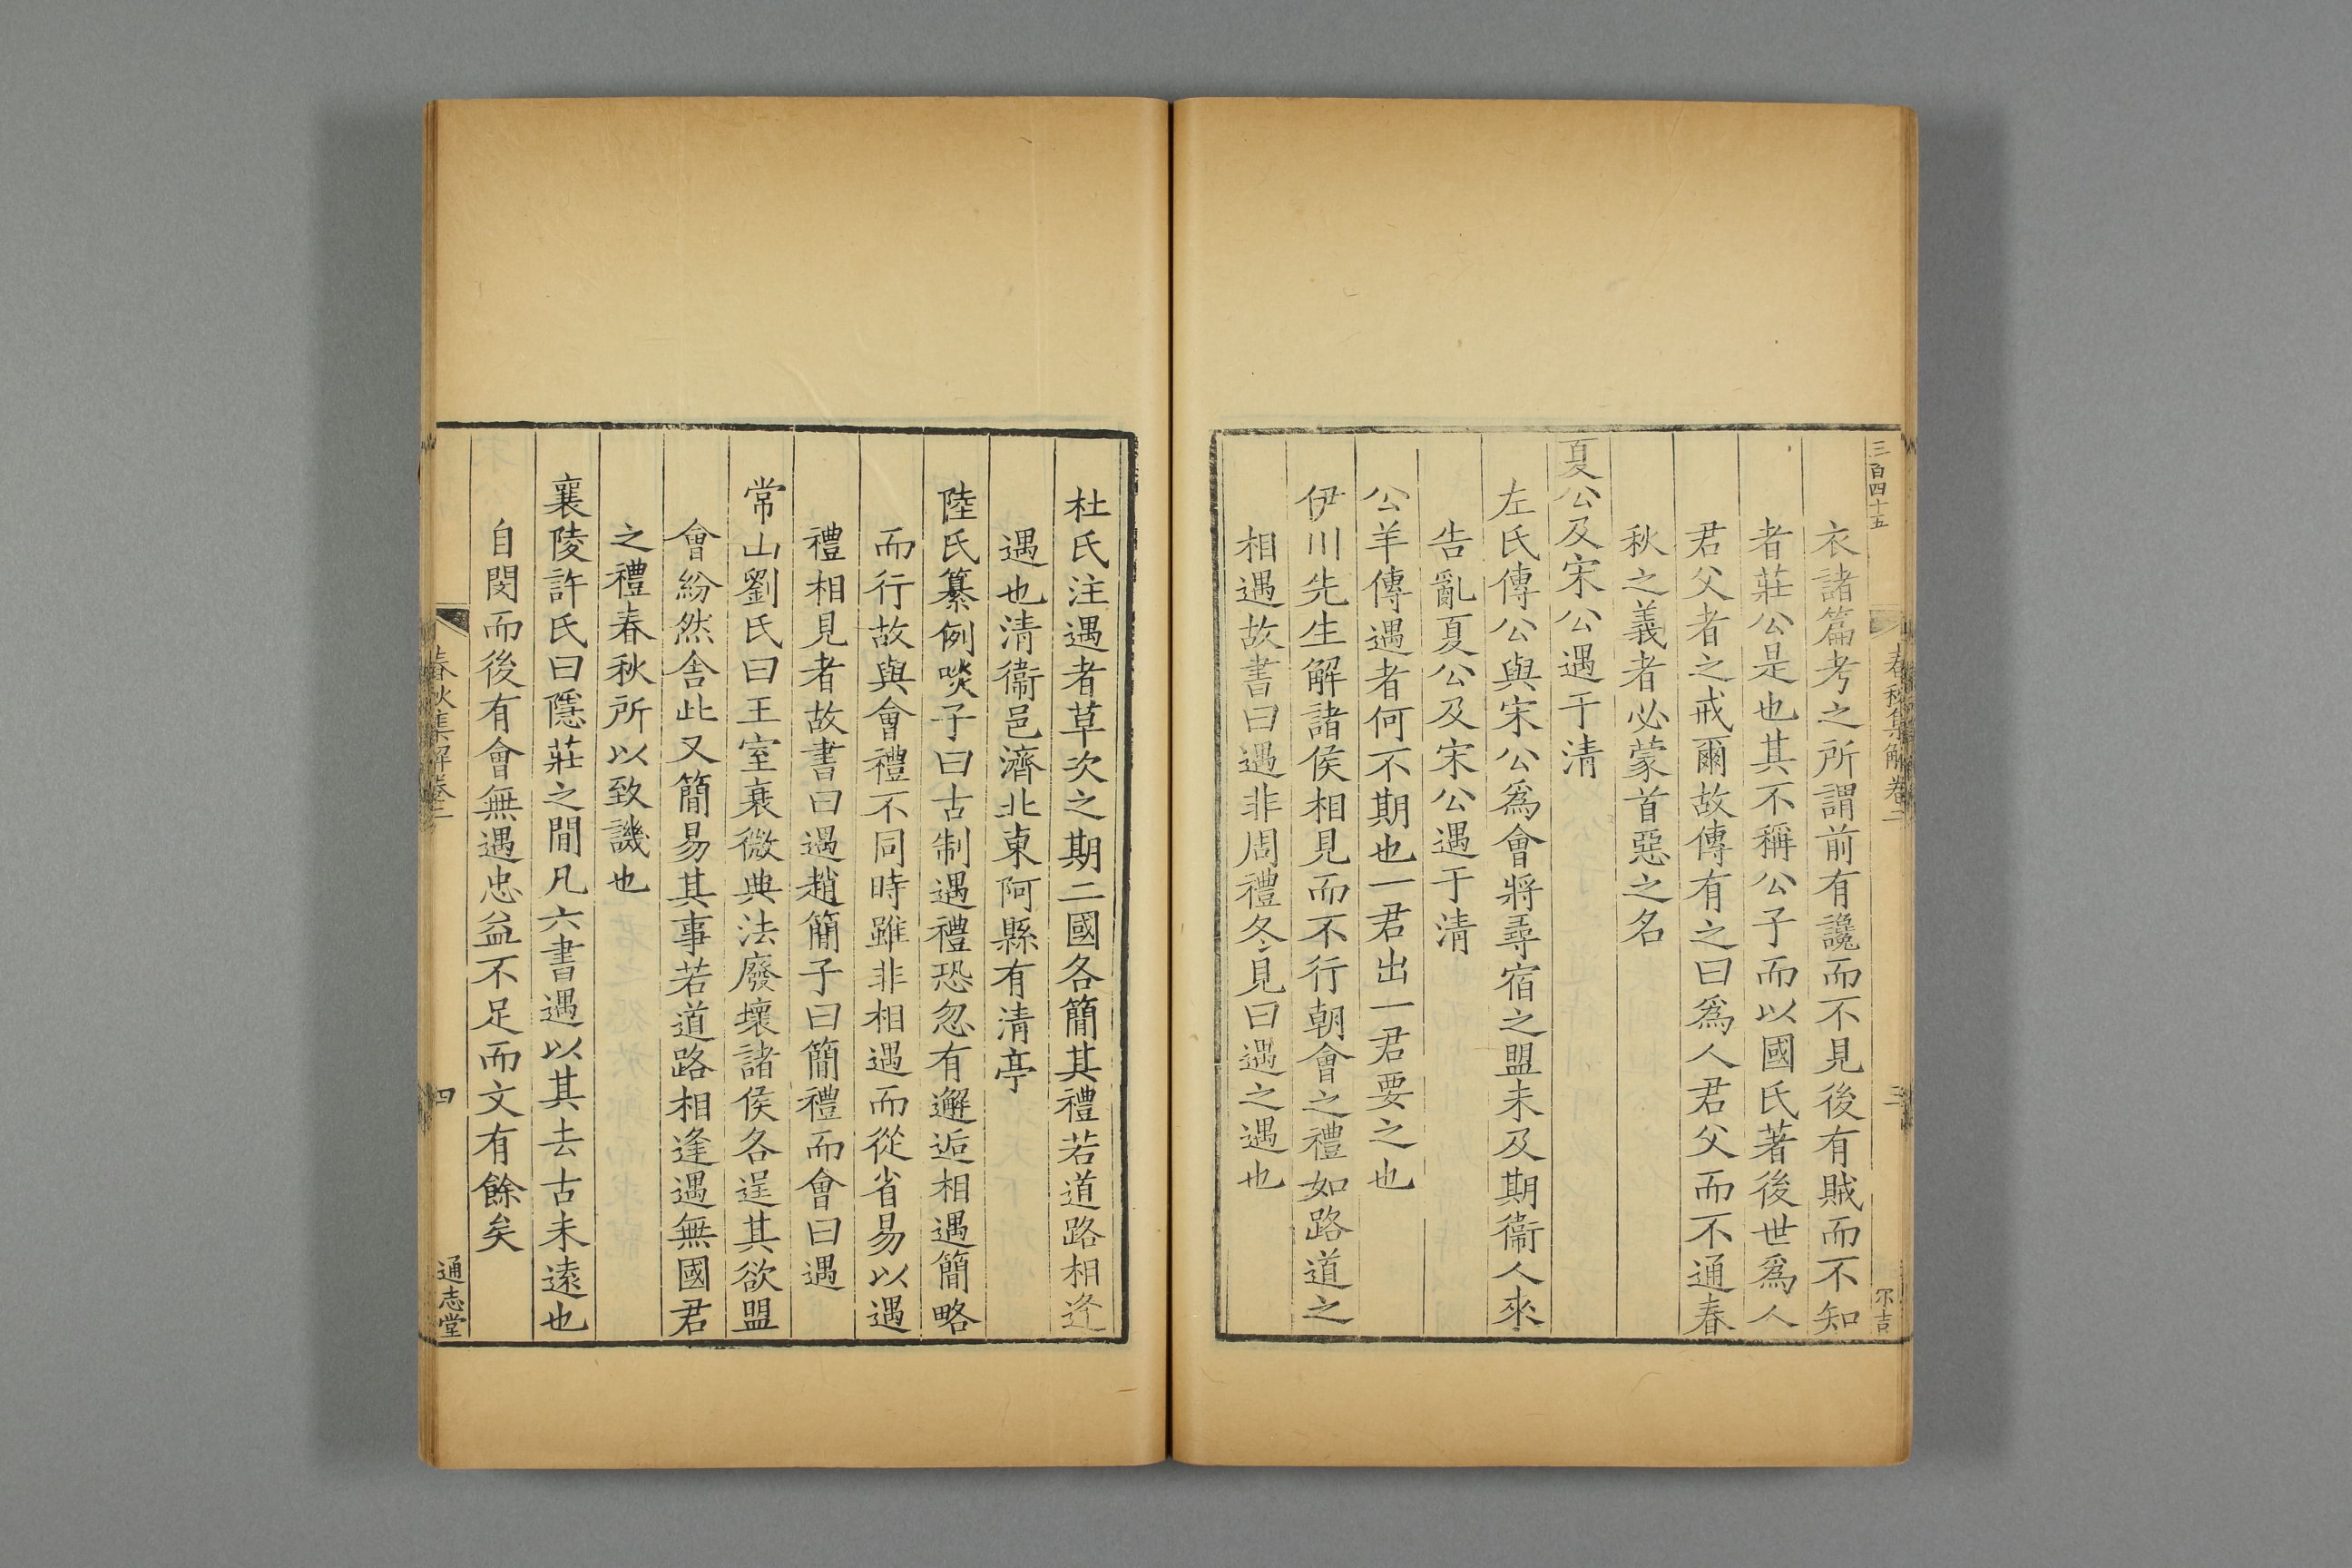 三百四十五
春秋集解卷二
三
尒吉
衣諸篇考之所謂前有讒而不見後有賊而不知
者莊公是也其不稱公子而以國氏著後世爲人
君父者之戒爾故傳有之曰爲人君父而不通春
秋之義者必蒙首惡之名
夏公及宋公遇于清
左氏傳公與宋公爲會將尋宿之盟未及期衞人來
告亂夏公及宋公遇于清
公羊傳遇者何不期也一君出一君要之也
伊川先生解諸侯相見而不行朝會之禮如路道之
相遇故書曰遇非周禮冬見曰遇之遇也
杜氏注遇者草次之期二國各簡其禮若道路相逢
遇也清衞邑濟北東阿縣有清亭
陸氏纂例啖子曰古制遇禮恐忽有邂逅相遇簡略
而行故與會禮不同時雖非相遇而從省易以遇
禮相見者故書曰遇趙簡子曰簡禮而會曰遇
常山劉氏曰王室衰微典法廢壞諸侯各逞其欲盟
會紛然舍此又簡易其事若道路相逢遇無國君
之禮春秋所以致譏也
襄陵許氏曰隱莊之間凡六書遇以其去古未遠也
自閔而後有會無遇忠益不足而文有餘矣
春秋集解卷二
四
通志堂